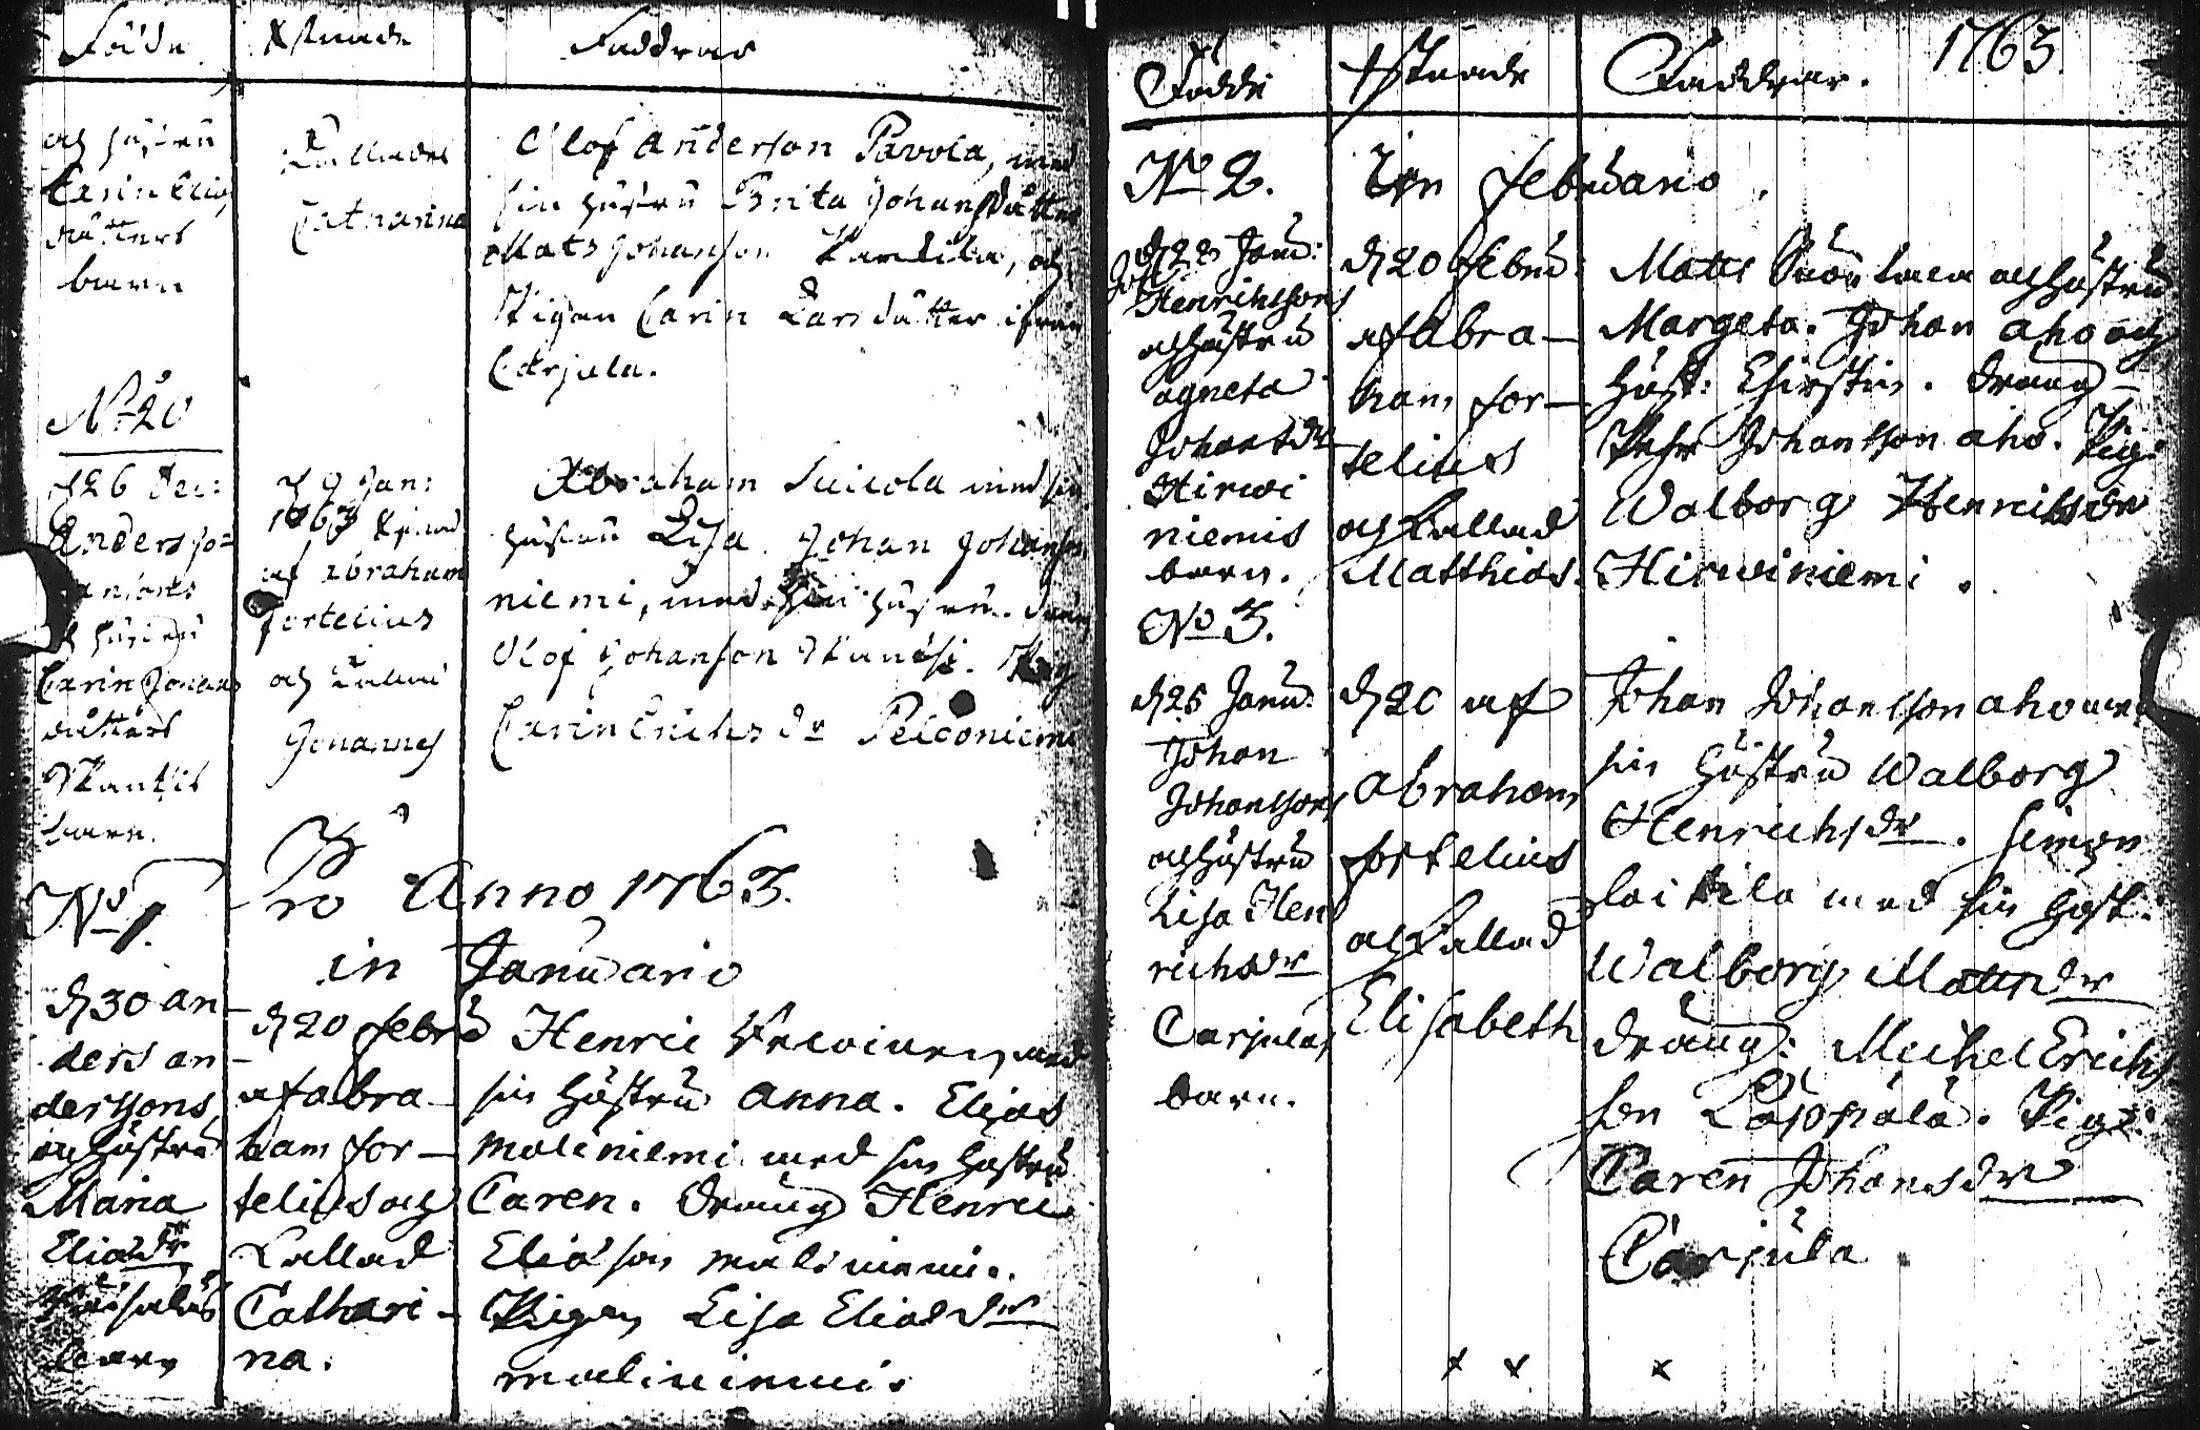 Födde
Xstnade
Faddrar
och hustru
Carin Elias
dåtters
barn
Kallades
Catharina
Olof Anderson Pavola, med
sin hustru Brita Johansdåtter
Mats Johanson och
Pigan Carin Lars dåtter ifrån
Carjula.
No 20
d 26 Dec:
Anders Jo=
och hustru
Carin Johans
dåtters
barn.
d 9 Jan:
1763 Xstnad
af Abraham
Fortelius
och Kallad
Johannes
Abraham med sin
hustru Lisa. Johan Johanson
niemi, med sin hustru. Dräng
Olof Johanson Pig
Carin Erichs dr Pelconiemi
No 1.
Pro Anno 1763.
in Januario
d 30 An
ders An
derssons
och Hustru
Maria
Elias dr
barn
d 20 Febru
af Abra-
ham For-
telius och
Kallad
Cathari-
na.
Henric med
sin Hustru Anna. Elias
Maliniemi med sin Hustru
Caren. Dräng Henric
Eliason Maliniemi.
Pigan Lisa Elias dr
Maliniemi.
Födde
Xstnade
Faddrar.
1763.
No 2.
in Februario.
d 28 Janu:
Henrichssons
och Hustru
Agneta
Johans dr
Hirwi
niemis
barn.
d 20 Febru:
af Abra-
ham For-
telius
och Kallad
Matthias.
Matts och Hustru
Margeta. Johan Aho och
Hust: Chirstin. Dräng
Pehr Johansson Aho. Pig:
Walborg Henrichs dr
Hirwiniemi.
No 3.
d 25 Janu:
Johan
Johanssons
och Hustru
Lisa Hen
richs dr
Carjula
barn.
d 20 af
Abraham
Fortelius
och Kallad
Elisabeth
Johan Johansson Aho med
sin Hustru Walborg
Henrichs dr. Simon
Laitila med sin Hust:
Walborg Matts dr
Dräng: Michel Erichs
son Lappala. Pig:
Caren Johans dr
Carjula
x x x